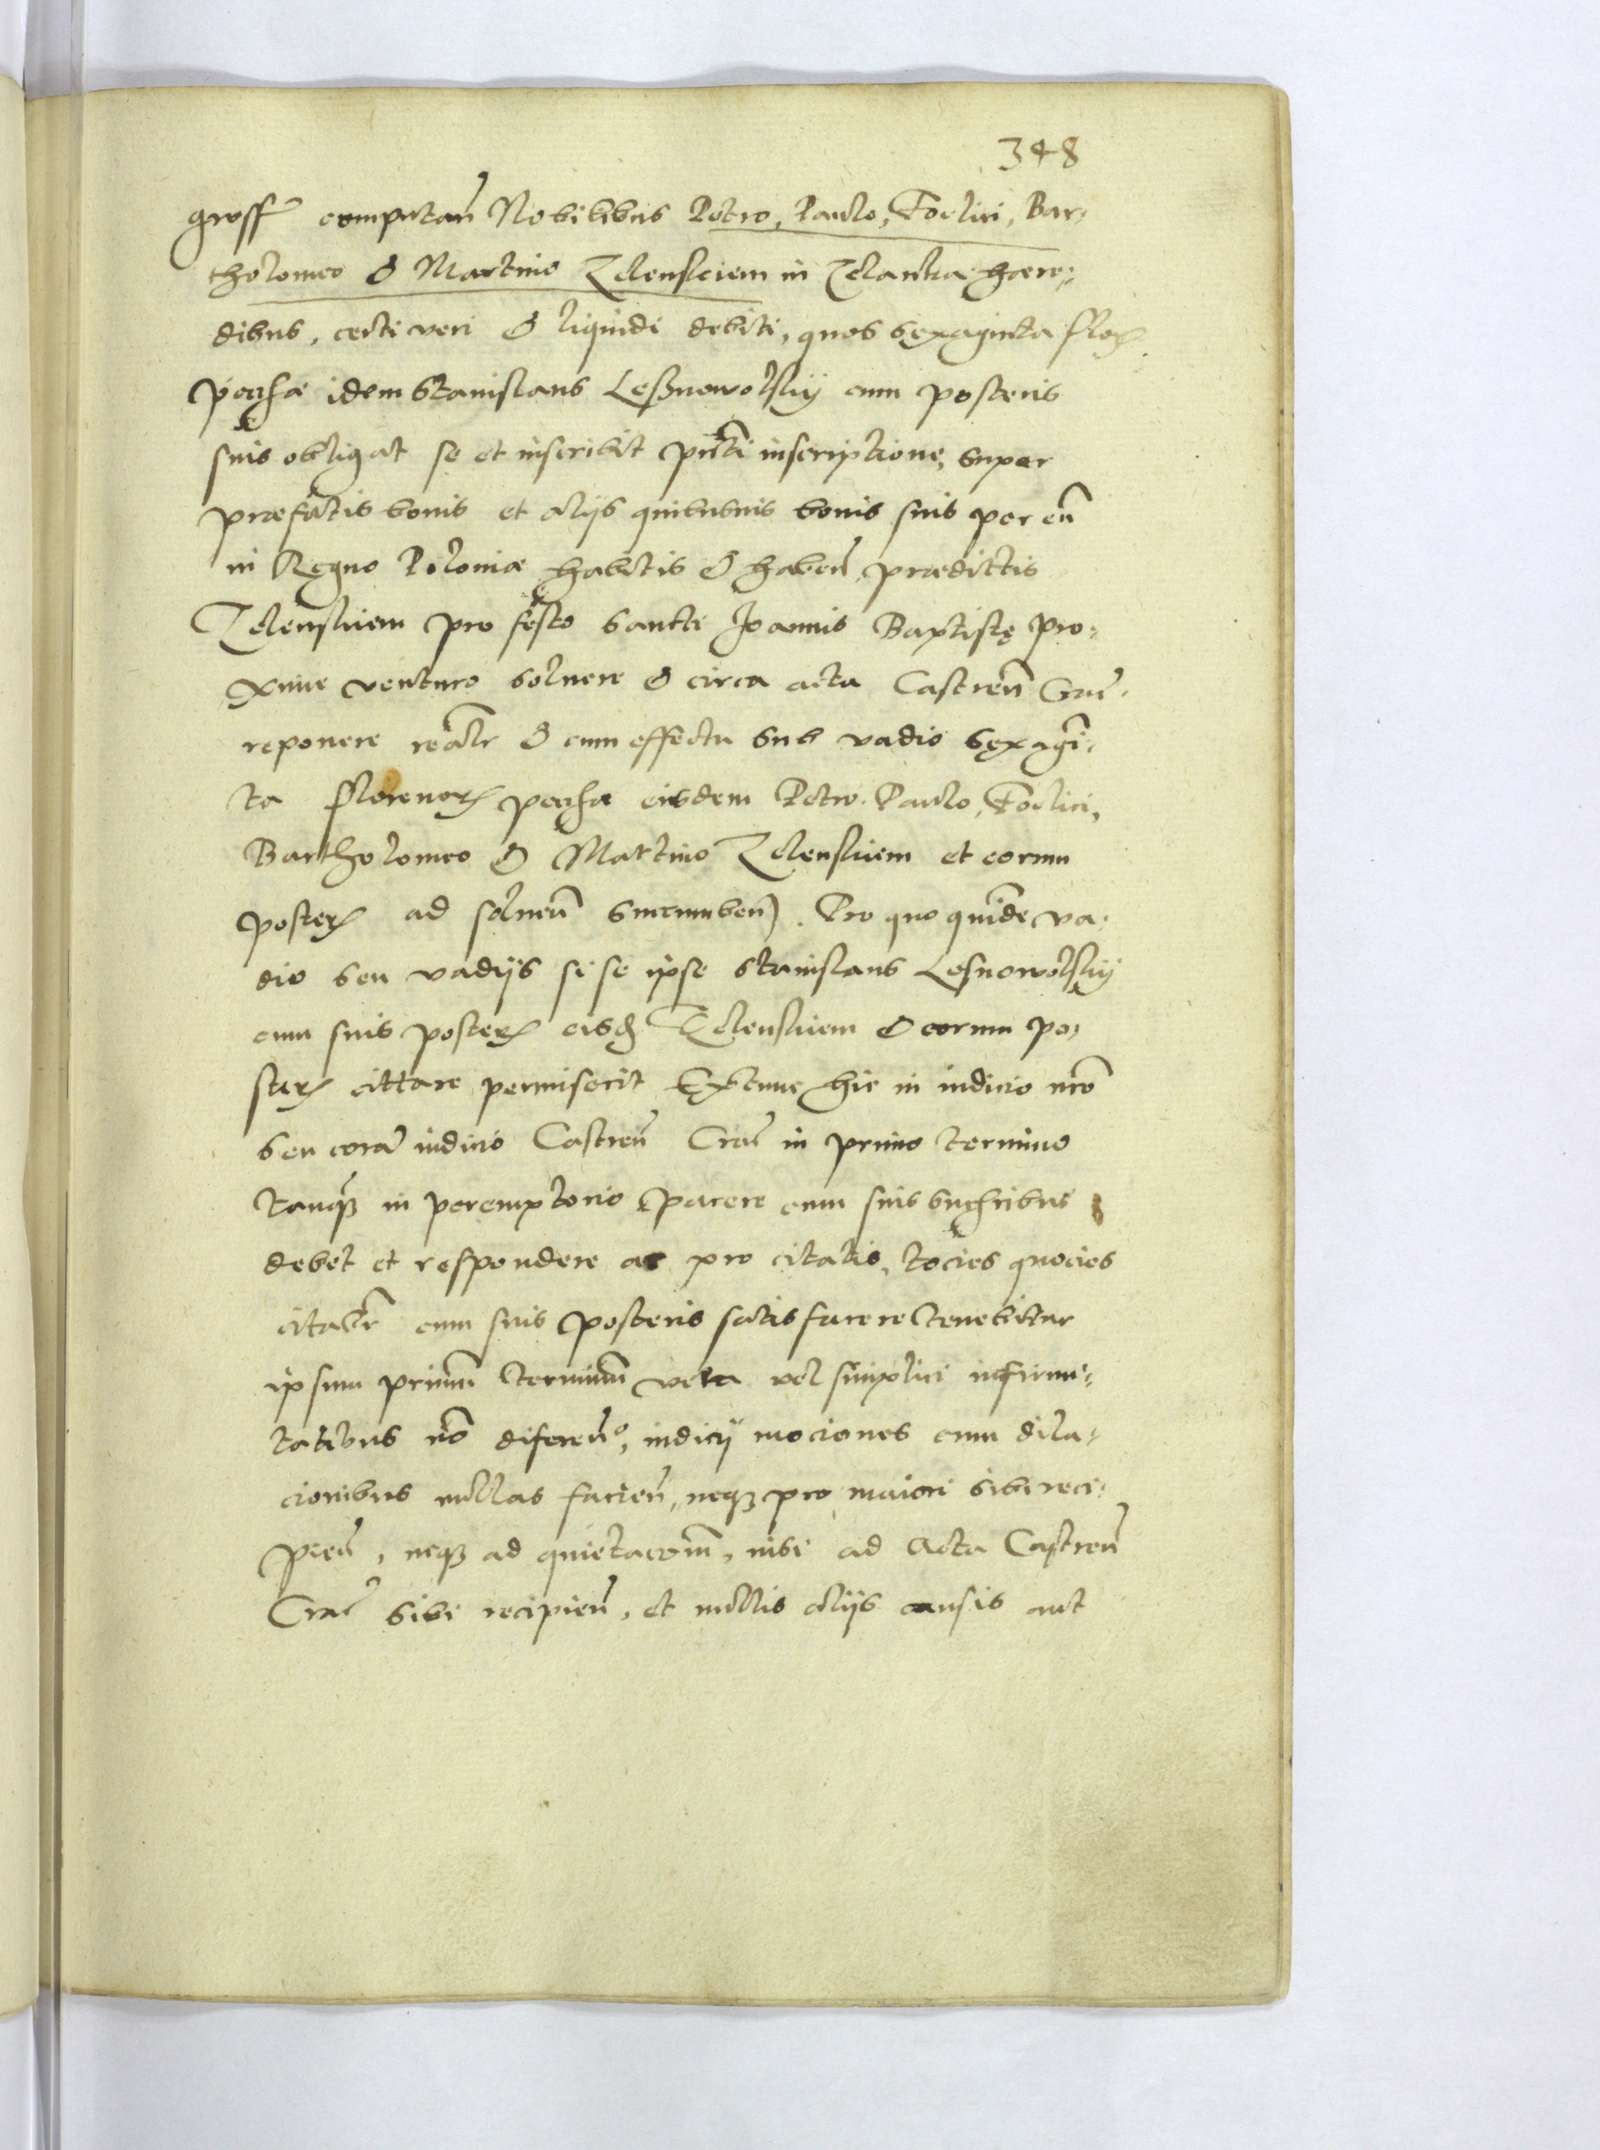 348
gross computan Nobilibus Petro, Paulo, Foelici, Bar-
tholomeo & Martino Zelenskiem in Zelanka hære-
dibus, certi veri & liquidi debiti, quos sexaginta flor
pecsae idem Stanislaus Lesznowolskij cum posteris
suis obligat se et inscribit pnti inscriptione, super
præfatis bonis et alijs quibusuis bonis suis per eu
in Regno Poloniæ habitis & haben prædictis
Zelenskiem pro festo Sancti Joannis Baptistę pro-
xime venturo soluere & circa acta Castren Crac
reponere realr & cum effectu sub vadio sexagin-
ta florenor pecsae eisdem Petro. Paulo, Foelici,
Bartholomeo & Martino Zelenskiem et eorum
poster ad soluen sucumben. Pro quo quide va-
dio seu vadijs si se ipse Stanislaus Lesnowolskij
cum suis poster eisd Zelenskiem & eorum po-
ster cittare permiserit Extunc hic in iudicio nro
seu cora iudicio Castren Crac in primo termino
tanq in peremptorio parere cum suis
debet et respondere ac pro citatis, tocies quocies
citabr cum suis posteris satisfacere tenebitur
ipsum primu terminu vera vel simplici infirmi-
tatibus no diferen, iudicij mociones cum dila-
cionibus nullas facien, neq pro maiori sibi reci-
pien, neq ad quietacom, nisi ad Acta Castren
Crac sibi recipien, et nullis alijs causis aut